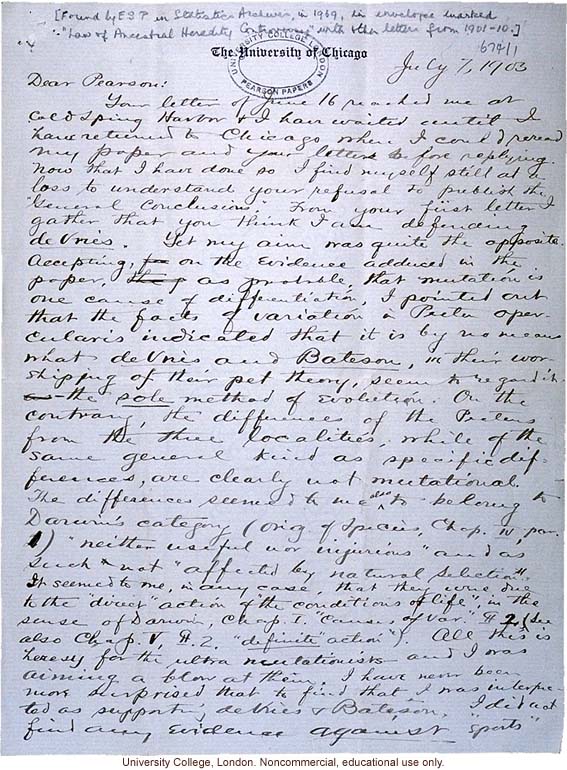 [Found by ESP in Statistics Archives, in 1969, in envelope marked
"Law of Ancestral Heredity" with other letters from 1901-10.]
674/1
UNIVERSITY COLLEGE LONDON
PEARSON PAPERS
The University of Chicago
July 7, 1903
Dear Pearson:
Your letter of June 16 reached me at
Cold Spring Harbor & I have waited until I
have returned to Chicago when I could reread
my paper and your letters before replying.
Now that I have done so I find myself still at a
loss to understand your refusal to publish the
"General Conclusions". From your first letter I
gather that you think I am defending
de Vries. Yet my aim was quite the opposite.
Accepting, on the evidence adduced in the
paper, as probable, that mutation is
one cause of differentiation, I pointed out
that the facts of variation in Pecten oper-
cularis indicated that it is by no means
what de Vries and Bateson, in their wor-
shipping of their pet theory, seem to regard it-
the sole method of evolution. On the
contrary, the differences of the Pectens
from the three localities, while of the
same general kind as specific dif-
ferences, are clearly not mutational.
The differences seemed to me also to belong to
Darwin's category (Orig of Species, Chap. IV, par.
1) "neither useful nor injurious" and as
such "not affected by natural selection".
It seemed to me, in any case, that they were due
to the "direct action of the conditions of life", in the
sense of Darwin, Chap. I. "Causes of Var." # 2, (see
also Chap. V, #. 2. "definite action"). All this is
heresy for the ultra mutationists and I was
aiming a blow at them. I have never been
more surprised that to find that I was interpre-
ted as supporting de Vries & Bateson. I did not
find any evidence against "sports"
University College, London. Noncommercial, educational use only.